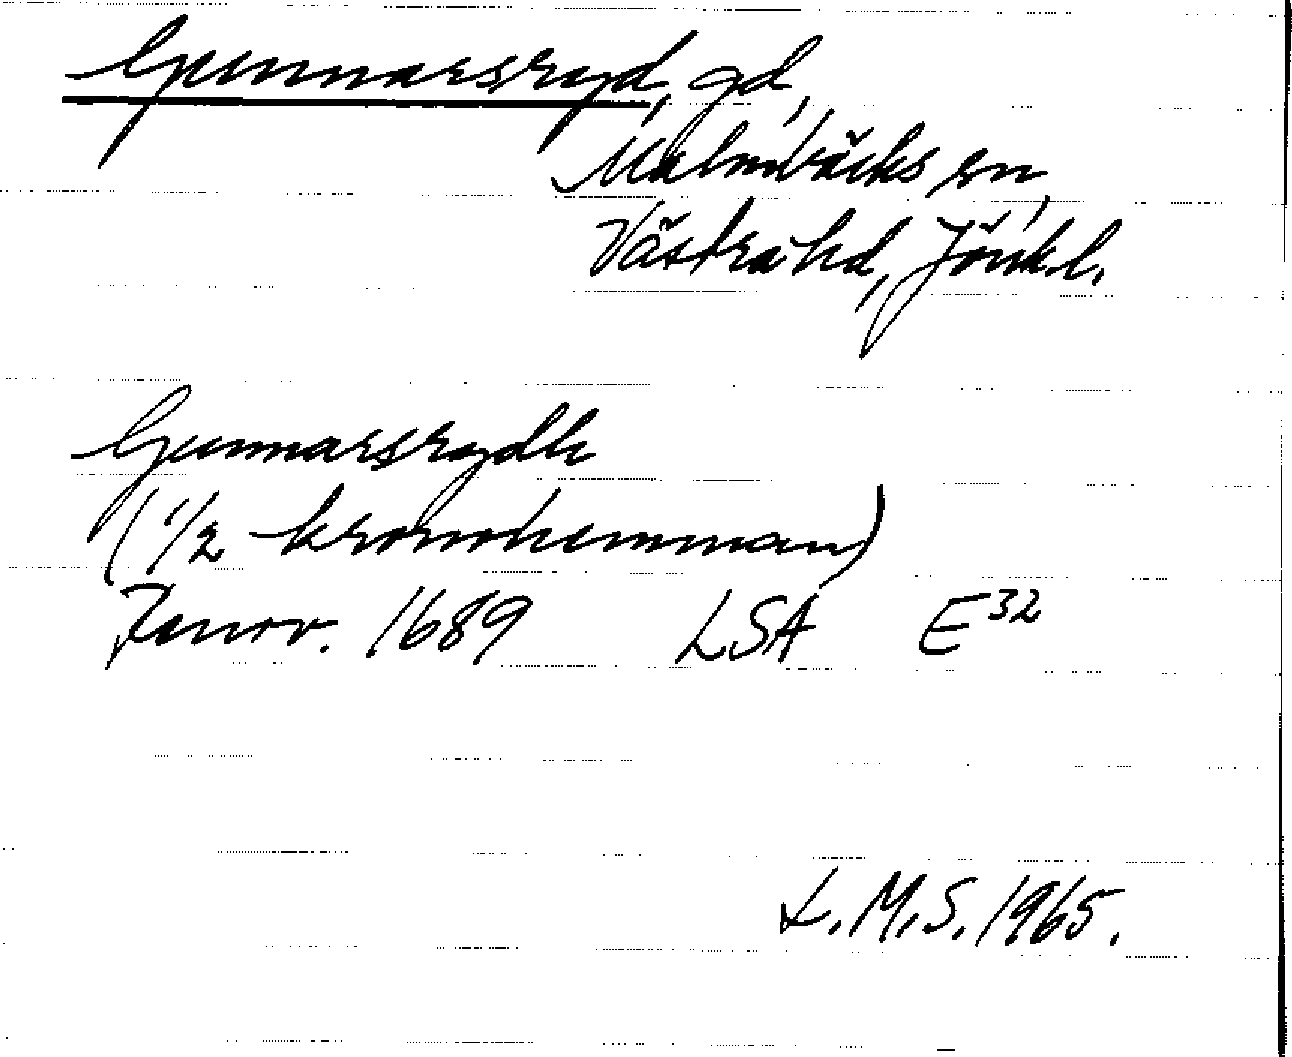 Gunnarsryd, gd,
Malmbäcks sn,
Västra hd, Jönk.l.
Gunnarsrydh
(1/2 kronohemman)
Jenrev. 1689 LSA E32
L.M.S. 1965.